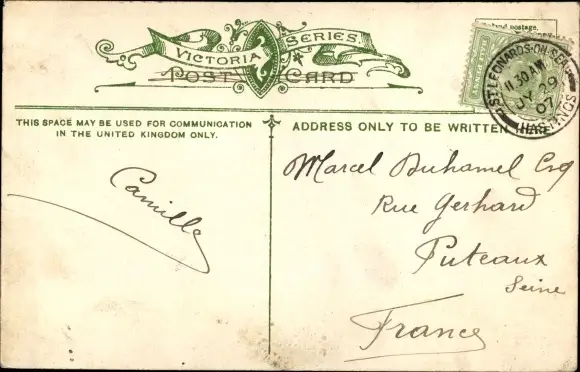 VICTORIA SERIES
POST CARD
THIS SPACE MAY BE USED FOR COMMUNICATION
IN THE UNITED KINGDOM ONLY.
ADDRESS ONLY TO BE WRITTEN
ST LEONARDS-ON-SEA
11 30 AM
JY 29
07
HASTINGS
Camille
Marcel Duhamel Esq
Rue Gerhard
Puteaux
Seine
France